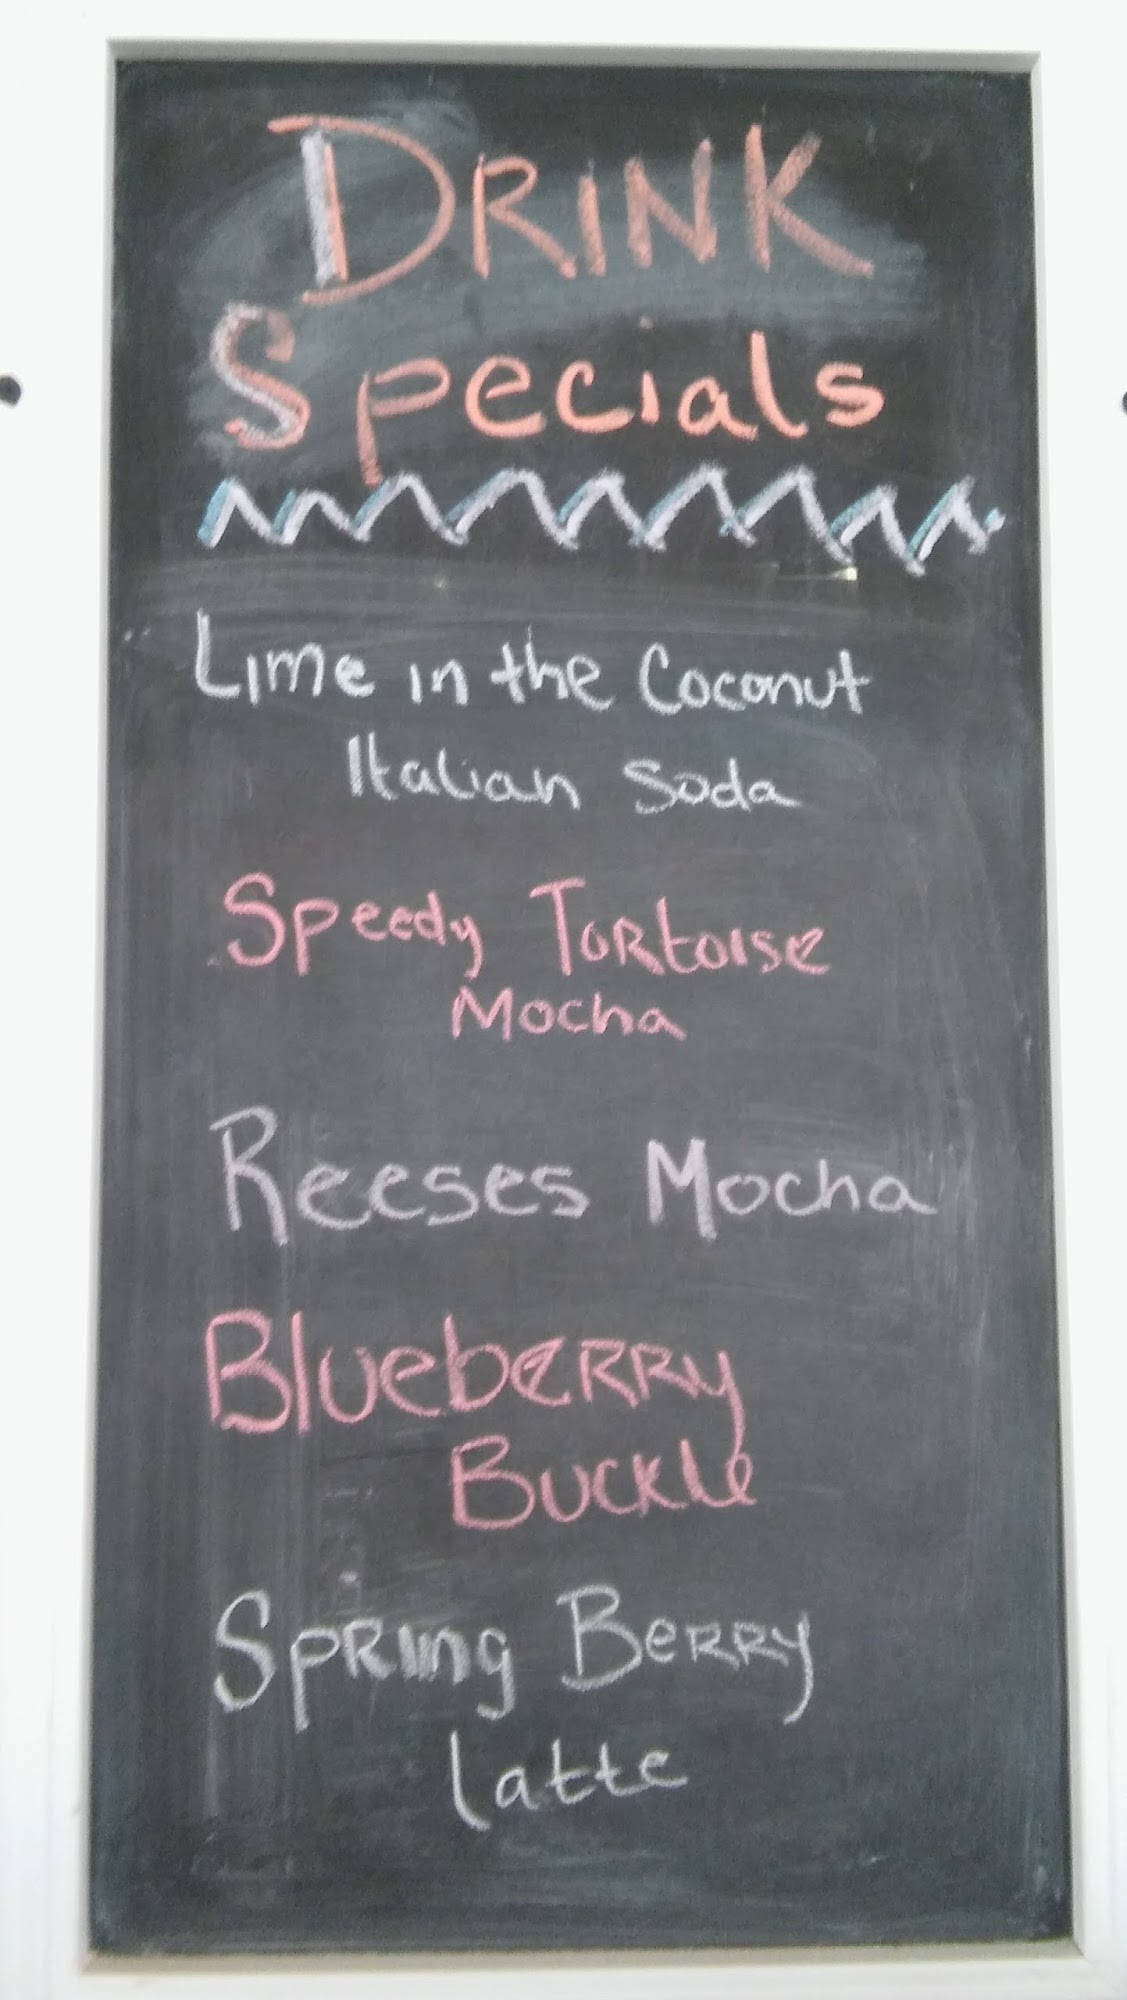 DRINK
Specials
Lime in the Coconut
Italian Soda
Speedy Tortoise
Mocha
Reeses Mocha
Blueberry
Buckle
Spring Berry
latte